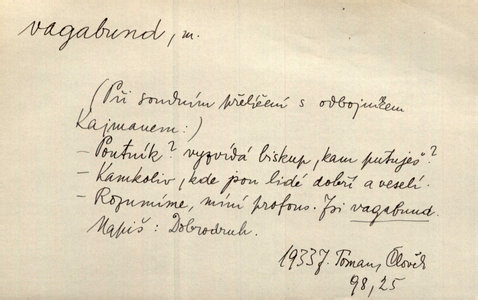 vagabund, m.
(Při soudním přelíčení s odbojníkem
Kajmanem:)
– Poutník? vyzvídá biskup, kam putuješ?
– Kamkoliv, kde jsou lidé dobří a veselí.
– Rozumíme, míní profous. Jsi vagabund.
Napiš: Dobrodruh.
1933 J. Toman, Člověk
98,25